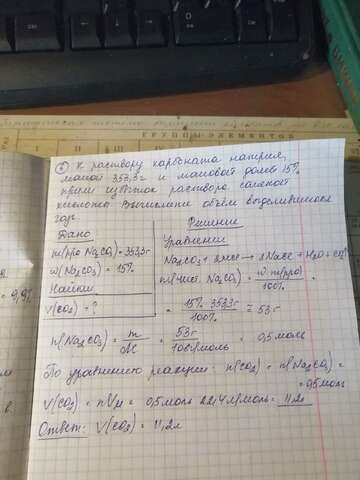 ГРУППЫ ЭЛЕМЕНТОВ
① К раствору карбоната натрия,
массой 353,3г и массовой долей 15%
прили избыток раствора соляной
кислоты. Вычислите объём выделившегося
газа.
Дано
Решение
m(р-ра Na₂CO₃)=353,3г
Уравнение
w(Na₂CO₃) = 15%
Na₂CO₃ + 2HCl → 2NaCl + H₂O + CO₂↑
Найти
m(чист. Na₂CO₃) = w·m(р-ра)/100% =
V(CO₂) = ?
= 15%·353,3г/100% ≅ 53г
n(Na₂CO₃) = m/M = 53г/106г/моль = 0,5моль
По уравнению реакции: n(CO₂) = n(Na₂CO₃) =
= 0,5моль
V(CO₂) = n·Vм = 0,5моль·22,4л/моль = 11,2л
Ответ: V(CO₂) = 11,2л
= 9,9%